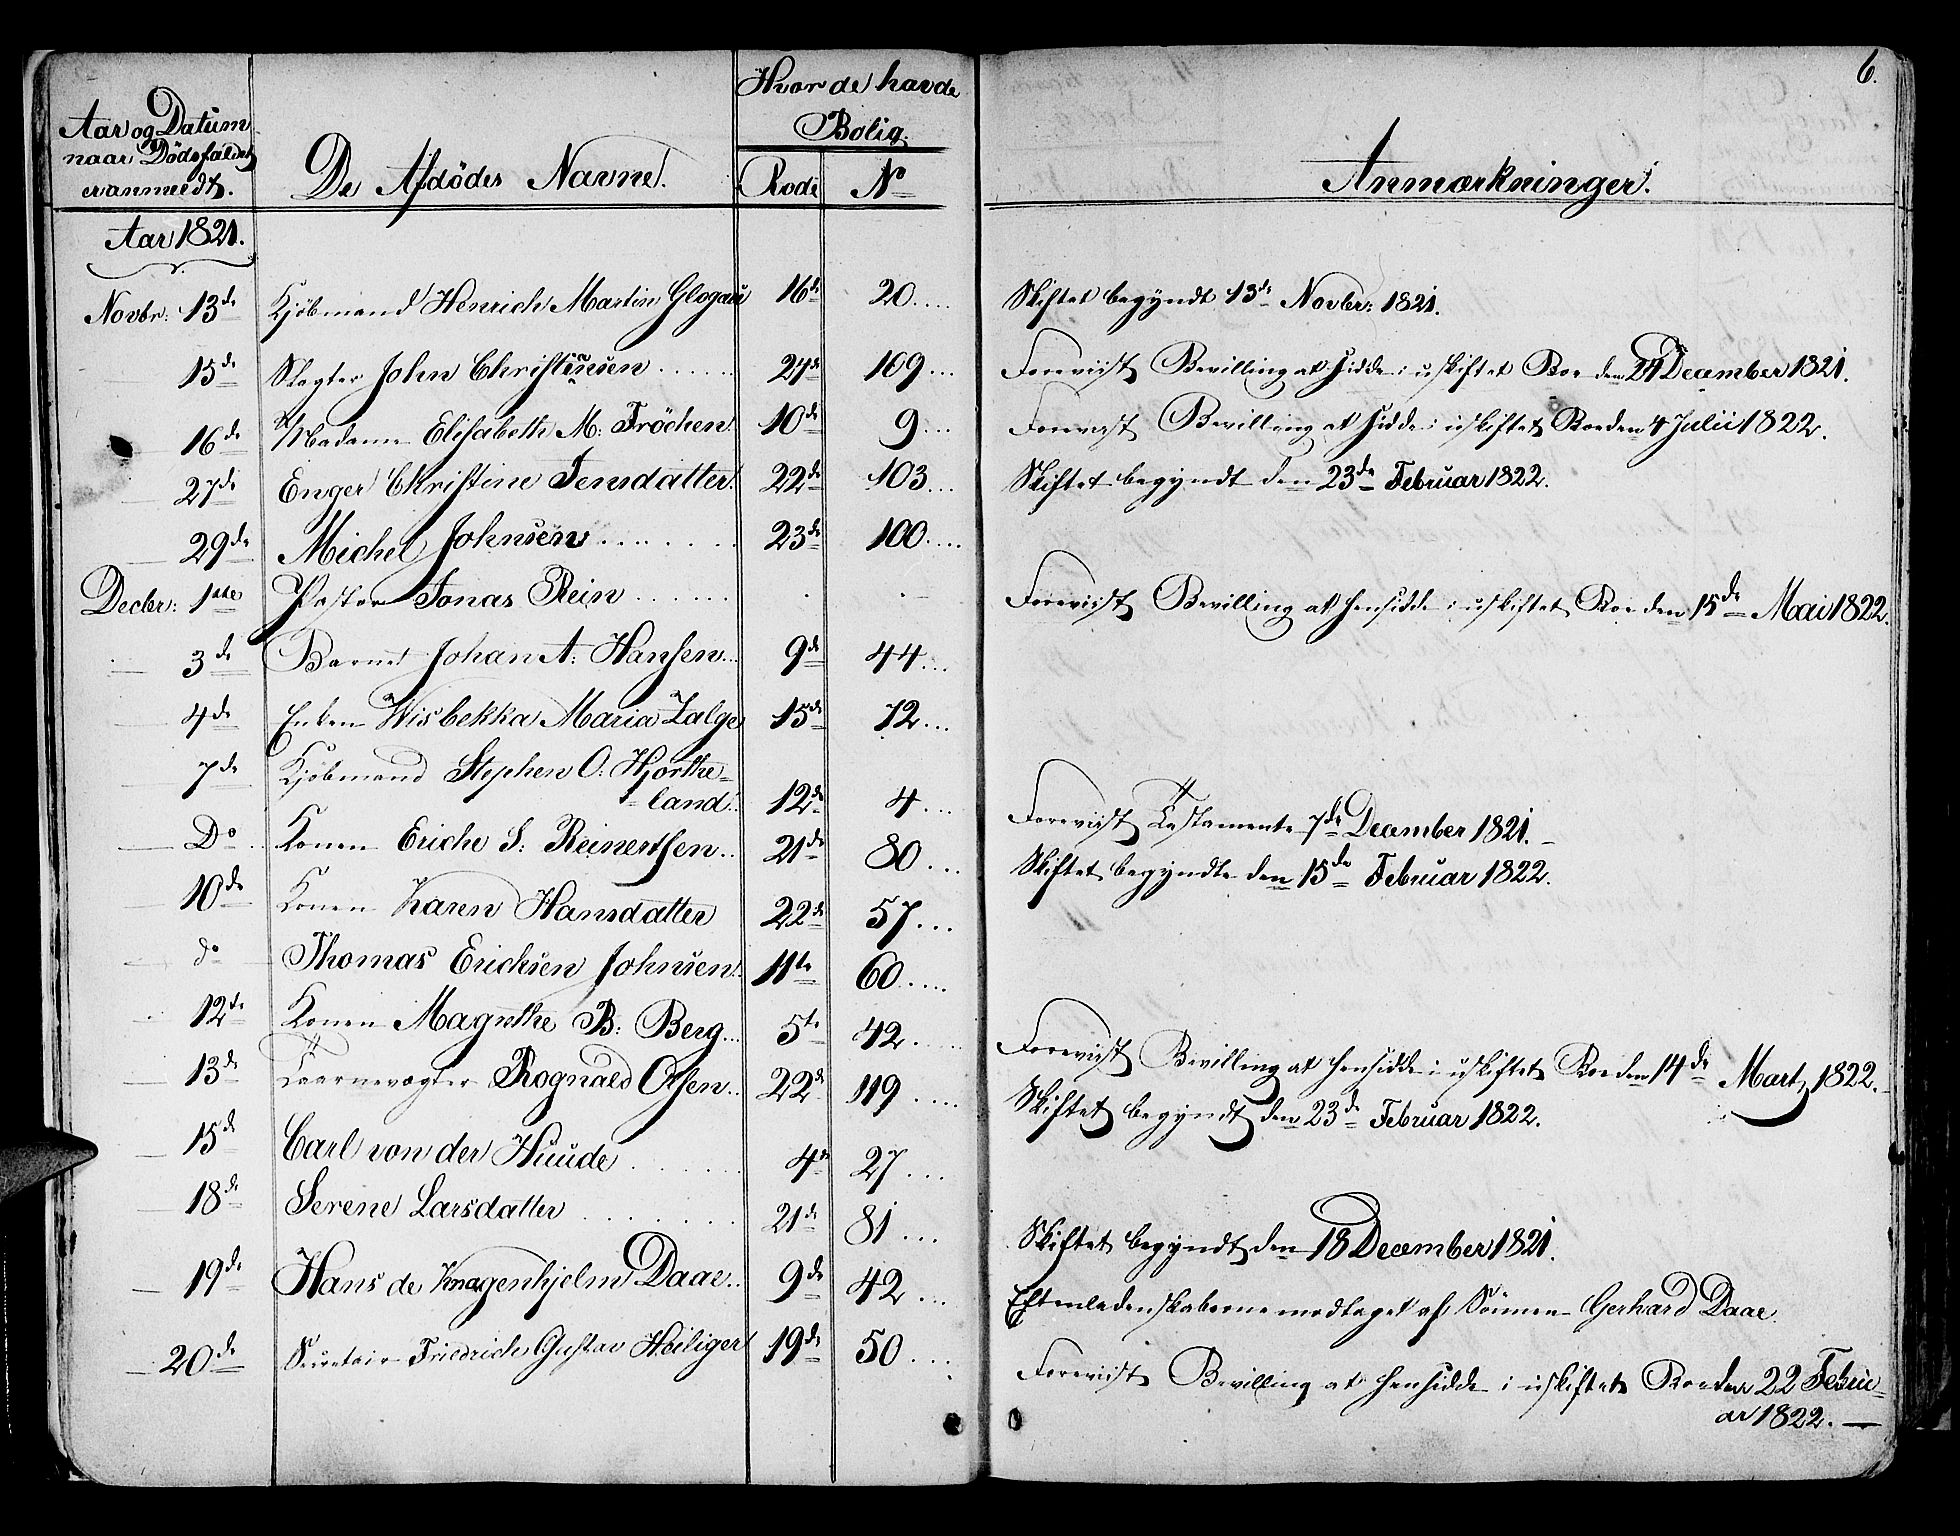 6.
Aar og Datum
naar Dødsfaldet
er anmeldt.
De Afdødes Navne.
Hvor de havde
Bolig.
Rode
No
Anmærkninger.
Aar 1821.
Novbr: 13de Kjöbmand Henrich Martin Glogau 16de 20.... Skiftet begyndt 13de Novbr: 1821.
15de Slagter John Christensen ...... 24de 109... Foreviist Bevilling at sidde i uskiftet Boe den 24 December 1821.
16de Madame Elisabeth M: Fröchen 10de 9... Foreviist Bevilling at sidde i uskiftet Boe den 4 Julii 1822.
27de Enger Christine Jensdatter 22de 103... Skiftet begyndt den 23de Februar 1822.
29de Michel Johnsen ........ 23de 100....
Decbr: 1ste Pastor Jonas Rein ...... Foreviist Bevilling at hensidde i uskiftet Boe den 15de Mai 1822.
3de Barnet Johan A: Hansen... 9de 44...
4de Enken Wisbekka Maria Zalge 15de 72...
7de Kjöbmand Stephen O: Hjorthe-
=land.. 12de 4.... Foreviist Testamente 7de December 1821.
Do Konen Eriche S: Reinertsen.. 21de 80.... Skiftet begyndte den 15de Februar 1822.
10de Konen Karen Hansdatter 22de 57...
do Thomas Ericksen Johnsen. 11te 60.....
12te Konen Magrethe B: Berg... 5te 42..... Foreviist Bevilling at hensidde i uskiftet Boe den 14de Marts 1822.
13de Taarnevægter Rognald Olsen.. 22de 119.... Skiftet begyndt den 23de Februar 1822.
15de Carl von der Huude ...... 4de 27....
18de Serene Larsdatter ....... 21de 81... Skiftet begyndt den 18 December 1821.
19de Hans de Knagenhjelm Daae.. 9de 42.... Efterladenskaberne modtaget af Sønnen Gerhard Daae.
20de Secretair Friedrich Gustav Heiliger 19de 50.... Foreviist Bevilling at hensidde i uskiftet Boe den 22 Febru=
ar 1822. —